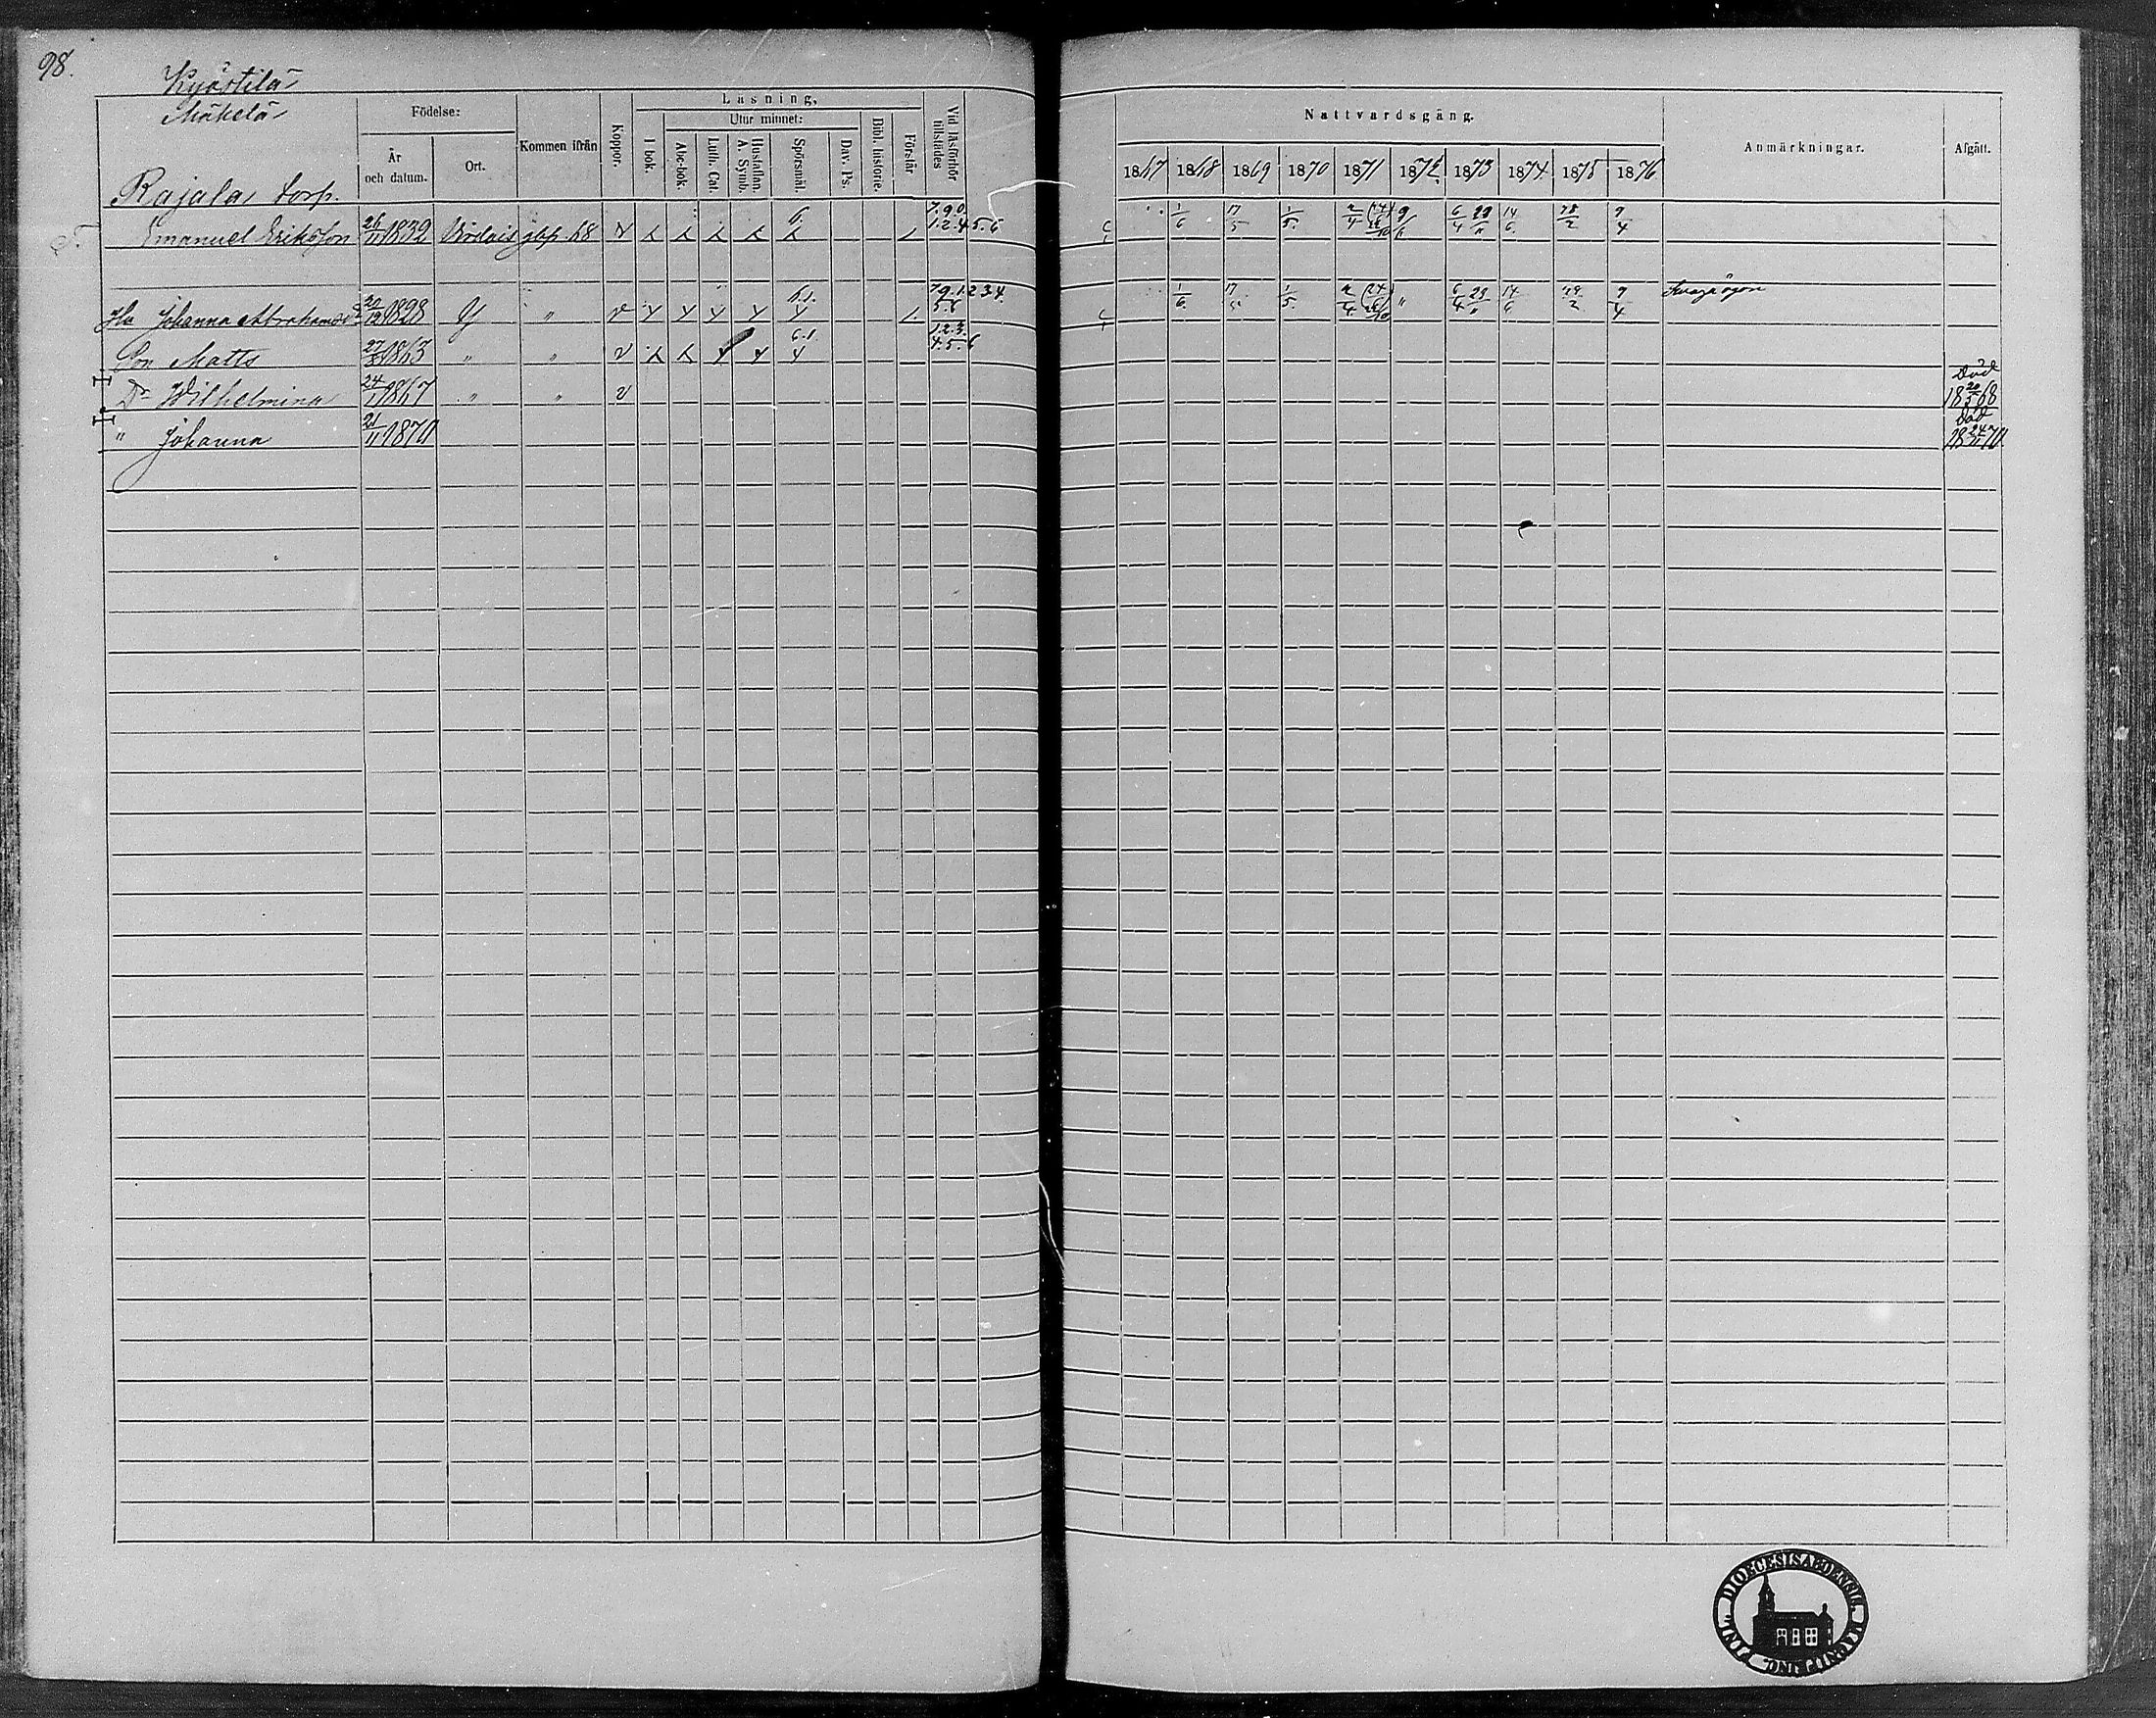 98.
Kyöstilä
Mäkelä
Födelse:
År
och datum.
Ort.
Kommen ifrån
Koppor.
Läsning,
I bok.
Utur minnet:
Abc-bok.
Luth. Cat.
Hustaflan.
A. Symb.
Spörsmål.
Dav. Ps.
Bibl. historie.
Förstår
Vid läsförhör
tillstädes
Nattvardsgång.
1867 1868 1869 1870 1871 1872 1873 1874 1875 1876
Anmärkningar.
Afgått.
Rajala torp.
Emanuel Eriksson 26/11 1832 7.9.0. 1.2.4.5.6 1/6 17/5 1/5. 2/4 6/4 14/6 18/2 9/4
Hu Johanna Abrahamsdr 20/12 1828 " 6.1. 7.9.1.2.3.4. 5.6 1/6 17/5 1/5. 2/4 " 6/4 14/6 9/4 Svaga ögon
Son Matts 27/8 1863 " " 6.1. 1.2.3. 4.5.6
Dr Wilhelmina 24/1 1867 " " Död 18 20/5 68
" Johanna 21/11 1870 Död 18 24/11 70
DIOECESIS ABOENSIS